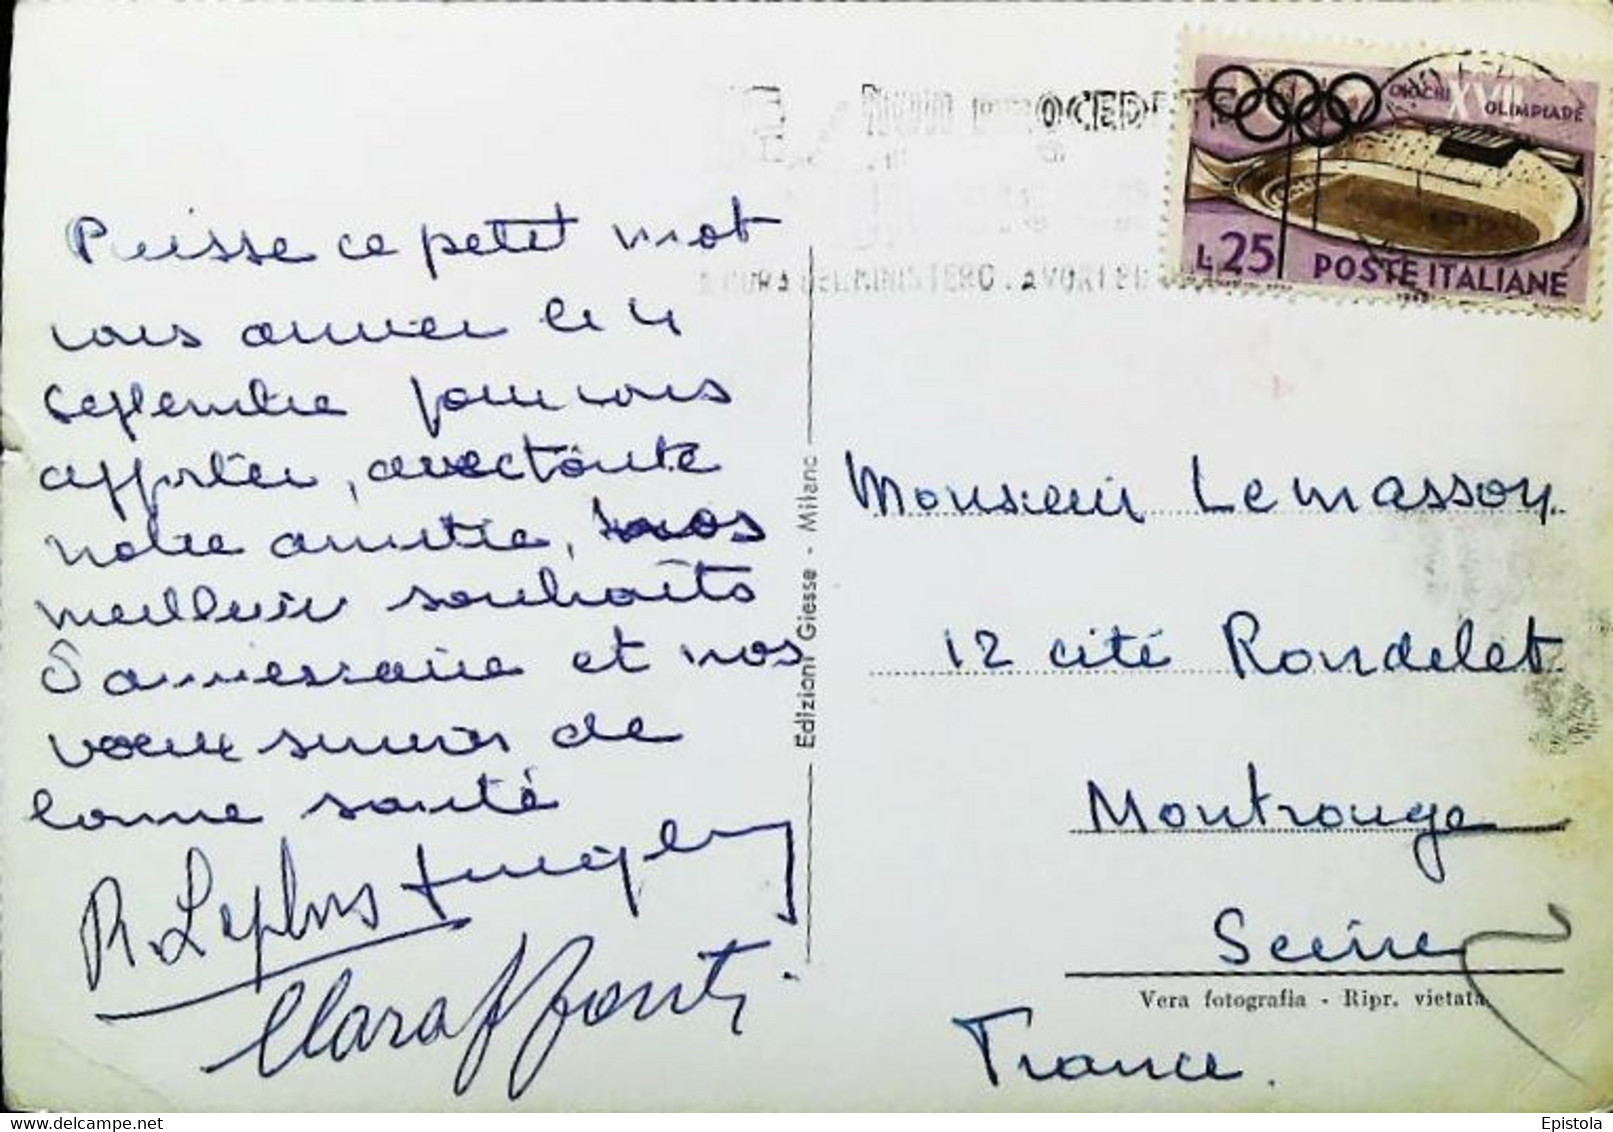 Puisse ce petit mot
vous arriver le 4
septembre pour vous
apporter, avec toute
notre amitié, nos
meilleurs souhaits
d'anniversaire et nos
voeux suivis de
bonne santé
R. Leplus
Clara
Edizioni Giesse - Milano
GIOCHI XVII OLIMPIADE
L.25 POSTE ITALIANE
1960
Monsieur Lemasson
12 cité Rondelet
Montrouge
Seine
Vera fotografia - Ripr. vietata
France.
Epistola